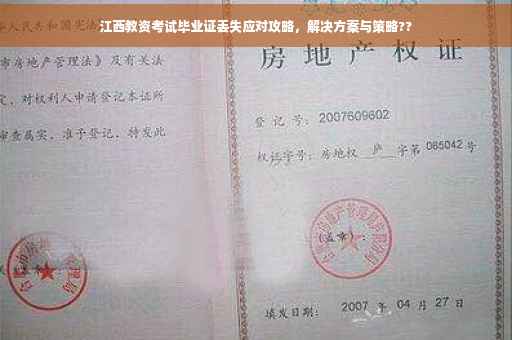 江西教资考试毕业证丢失应对攻略，解决方案与策略??
人民共和国宪法
市房地产管理法》及有关法
定，对权利人申请登记本证所
审查属实，准予登记，特发此
房地产权证
登记号：2007609602
权证字号：房地权 庐 字第 085042 号
(盖章)：
填发日期： 2007 年 04 月 27 日